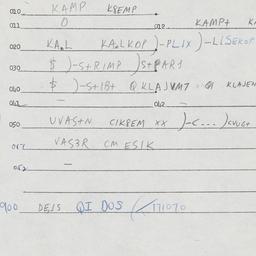 010 KAMP KREMP
011 0 012 KAMP+
020 KA.L KA.LKOP )-PLIX )-LISEKOP
030 $ )-S+RIMP )S+PAR1
040 $ )-S+IB+ Q KLAJVM7 QI KLAJEM
041 - 042 -
050 UVAS+N CIKREM XX )-C... )CVUG+
051 VAS3R CM ESIK
052 -
900 DEJS QI DUS 171070